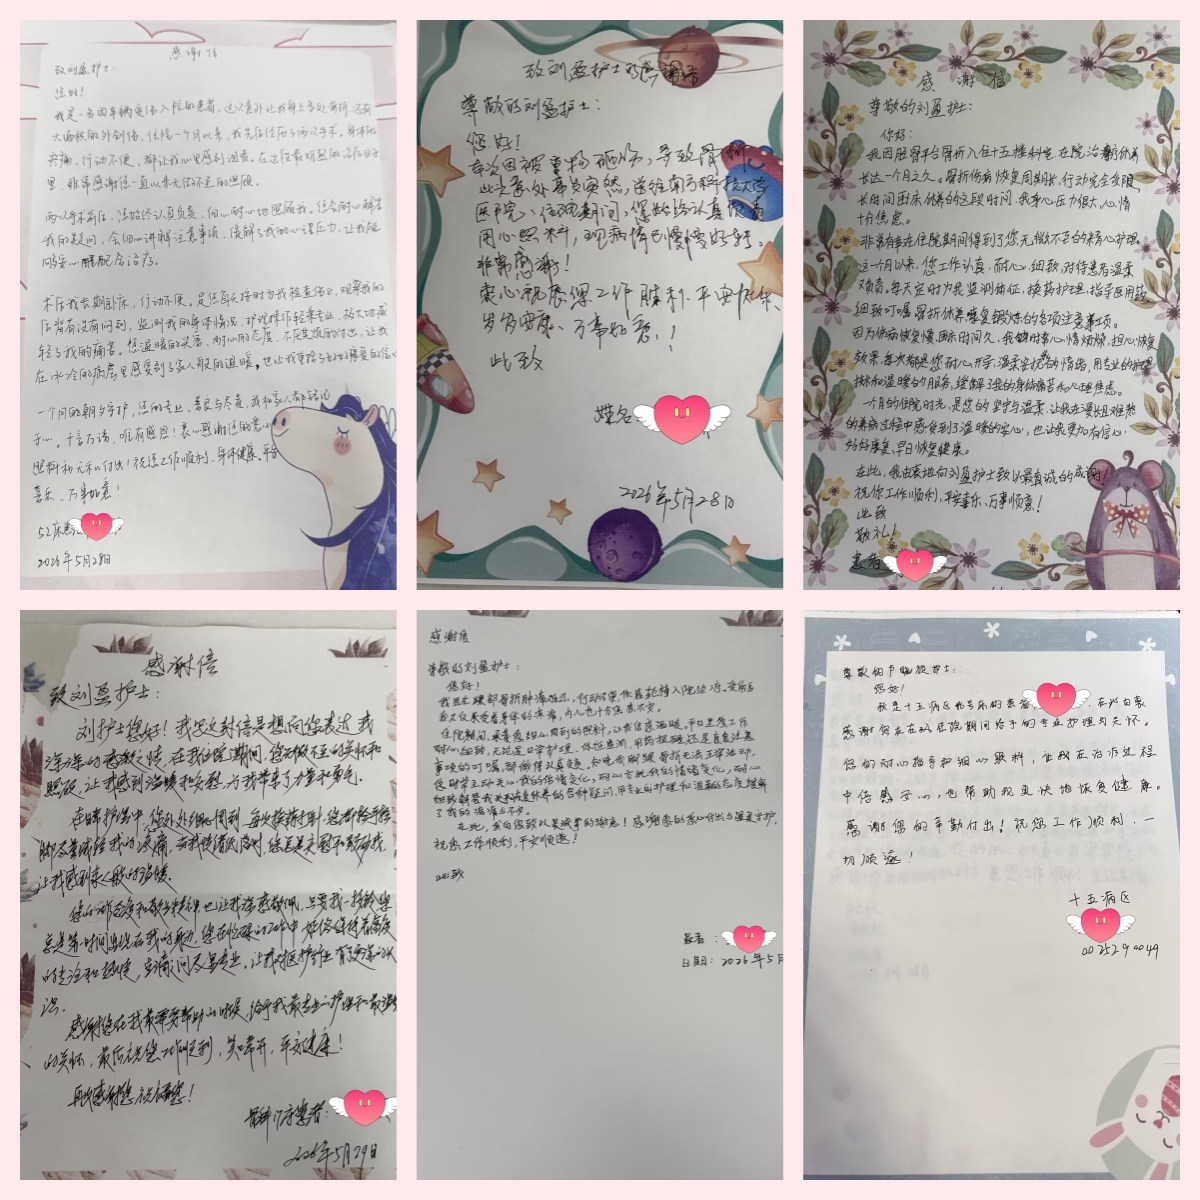 感谢信
致刘盈护士：
您好！
我是一名因车辆受伤入院的患者，这次意外让我身上多处骨折，还有
大面积的外创伤，住院一个月以来，我先后经历了两次手术。身体的
疼痛、行动不便，都让我心里感到沮丧。在这段最难熬的治疗日子
里，非常感谢您一直以来无微不至的照顾。
两次手术前后，您始终认真负责，细心耐心地照顾我，您会耐心解答
我的疑问，会细心讲解注意事项，缓解了我的心理压力，让我能
够安心配合治疗。
术后我长期卧床，行动不便。是您每天按时为我检查伤口，观察我的
后背有没有问题，监测我的身体情况，护理操作轻柔专业，极大地减
轻了我的痛苦。您温暖的笑容、耐心的态度、不厌其烦的付出，让我
在冰冷的病房里感受到了家人般的温暖，也让我更接
一个月的朝夕守护，您的专业、善良与尽责，我和家人都铭记
于心。千言万语，唯有感恩！衷心感谢您的悉心
照料和无私付出！祝您工作顺利、身体健康、平安
喜乐、万事如意！
52床患
2026年5月28日
致刘盈护士的感谢信
尊敬的刘盈护士：
您好！
本次因被重物砸伤，导致骨折，
此次意外事发突然，送往南方科技大学
医院，住院期间，您始终认真负责
用心照料，现病情已慢慢好转。
非常感谢！
衷心祝愿您工作顺利、平安快乐、
岁岁安康、万事如意！！
此致
姓名
2026年5月28日
感谢信
尊敬的刘盈护士：
您好：
我因胫骨平台骨折入住十五楼科室，在院治疗休养
长达一个月之久。骨折伤病恢复周期长，行动完全受限，
长时间卧床休养的这段时间，我身心压力很大，心情
十分焦虑。
非常有幸在住院期间得到了您无微不至的精心护理。
这一个月以来，您工作认真、耐心、细致，对待患者温柔
又负责。每天定时为我监测体征，换药护理，指导医用药，
细致叮嘱骨折休养康复锻炼的各项注意事项。
因为伤病恢复慢卧床时间久，我时常心情烦躁，担心恢复
效果，每次都是您耐心开导，温柔安抚我的情绪，用专业的护理
技术和温暖的服务，缓解了我的身体痛苦和心理焦虑。
一个月的住院时光，是您的坚守与温柔，让我在漫长且难熬
的养病过程中感受到了温暖的安心，也让我更加有信心
好好康复，早日恢复健康。
在此，我由衷地向刘盈护士致以最真诚的感谢！
祝你工作顺利，平安喜乐、万事顺意！
此致
敬礼！
患者
感谢信
致刘盈护士：
刘护士您好！我写这封信是想向您表达我
深深的感激之情，在我住院期间，您无微不至的关怀和
照顾，让我感到温暖和安慰，为我带来了力量和勇气。
在
让我感到家人般的温暖。
您的工作态度和敬业精神也让我深感敬佩，只要我一按铃您
总是第一时间出现在我的身边，
识。
感谢您在我最需要帮助的时候，给予我最专业的护理和最温
的关怀，最后祝您工作顺利，笑口常开，平安健康！
再次感谢您 祝福您！
骨科17床患者：
2026年5月29日
感谢信
尊敬的刘盈护士：
您好！
我因左腿部骨折肿痛难忍，行动不便，依靠轮椅入院治疗。受伤后
我不仅承受着身体的疼痛，内心也十分焦虑不安。
住院期间，承蒙您细心周到的照料，让我倍感温暖。平日里您工作
耐心细致，无论是日常护理、体征查测、用药提醒还是康复注意
事项的叮嘱，都做得认真妥
我的情绪变化，耐心
了我的焦虑与不安。
在此，我向您致以最诚挚的谢意！感谢您的悉心付出与温柔守护，
祝您工作顺利，平安顺遂！
此致
患者：
日期：2026年5月
尊敬的尹晓璇护士：
您好！
我是十五病区
感谢
您的耐心指导和细心照料，让我在治疗过程
中倍感安心，也帮助我更快地恢复健康。
感谢您的辛勤付出！祝您工作顺利，一
切顺遂！
十五病区
0025290049